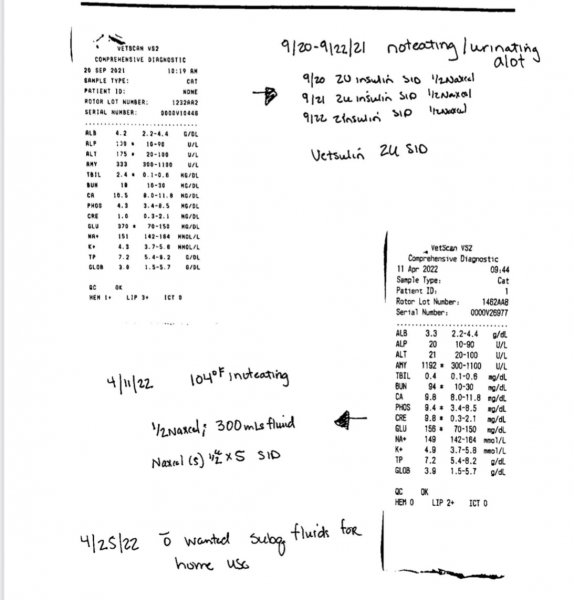 VETSCAN VS2
COMPREHENSIVE DIAGNOSTIC
20 SEP 2021 10:19 AM
SAMPLE TYPE: CAT
PATIENT ID: NONE
ROTOR LOT NUMBER: 1232AA2
SERIAL NUMBER: 0000V10446
ALB 4.2 2.2-4.4 G/DL
ALP * 10-90 U/L
ALT 175 * 20-100 U/L
AMY 333 300-1100 U/L
TBIL 2.4 * 0.1-0.6 MG/DL
BUN 18 10-30 MG/DL
CA 10.5 8.0-11.8 MG/DL
PHOS 4.3 3.4-8.5 MG/DL
CRE 1.0 0.3-2.1 MG/DL
GLU 370 * 70-150 MG/DL
NA+ 151 142-164 MMOL/L
K+ 4.3 3.7-5.8 MMOL/L
TP 7.2 5.4-8.2 G/DL
GLOB 3.0 1.5-5.7 G/DL
QC OK
HEM 1+ LIP 3+ ICT 0
9/20-9/22/21 noteating/urinating
alot
9/20 2U insulin SID 1/2 Naxcel
9/21 2u insulin SID 1/2 Naxcel
9/22 2insulin SID 1/2 Naxcel
Vetsulin 2U SID
VetScan VS2
Comprehensive Diagnostic
11 Apr 2022 09:44
Sample Type: Cat
Patient ID: 1
Rotor Lot Number: 1462AA8
Serial Number: 0000V26977
ALB 3.3 2.2-4.4 g/dL
ALP 20 10-90 U/L
ALT 21 20-100 U/L
AMY 1192 * 300-1100 U/L
TBIL 0.4 0.1-0.6 mg/dL
BUN 94 * 10-30 mg/dL
CA 9.8 8.0-11.8 mg/dL
PHOS 9.4 * 3.4-8.5 mg/dL
CRE 9.8 * 0.3-2.1 mg/dL
GLU 156 * 70-150 mg/dL
NA+ 149 142-164 mmol/L
K+ 4.9 3.7-5.8 mmol/L
TP 7.2 5.4-8.2 g/dL
GLOB 3.9 1.5-5.7 g/dL
QC OK
HEM 0 LIP 2+ ICT 0
4/11/22 104°F; noteating
1/2 Naxcel; 300 mLs fluid
Naxcel (5) 1/2 x 5 SID
4/25/22 ō wanted subq fluids for
home use